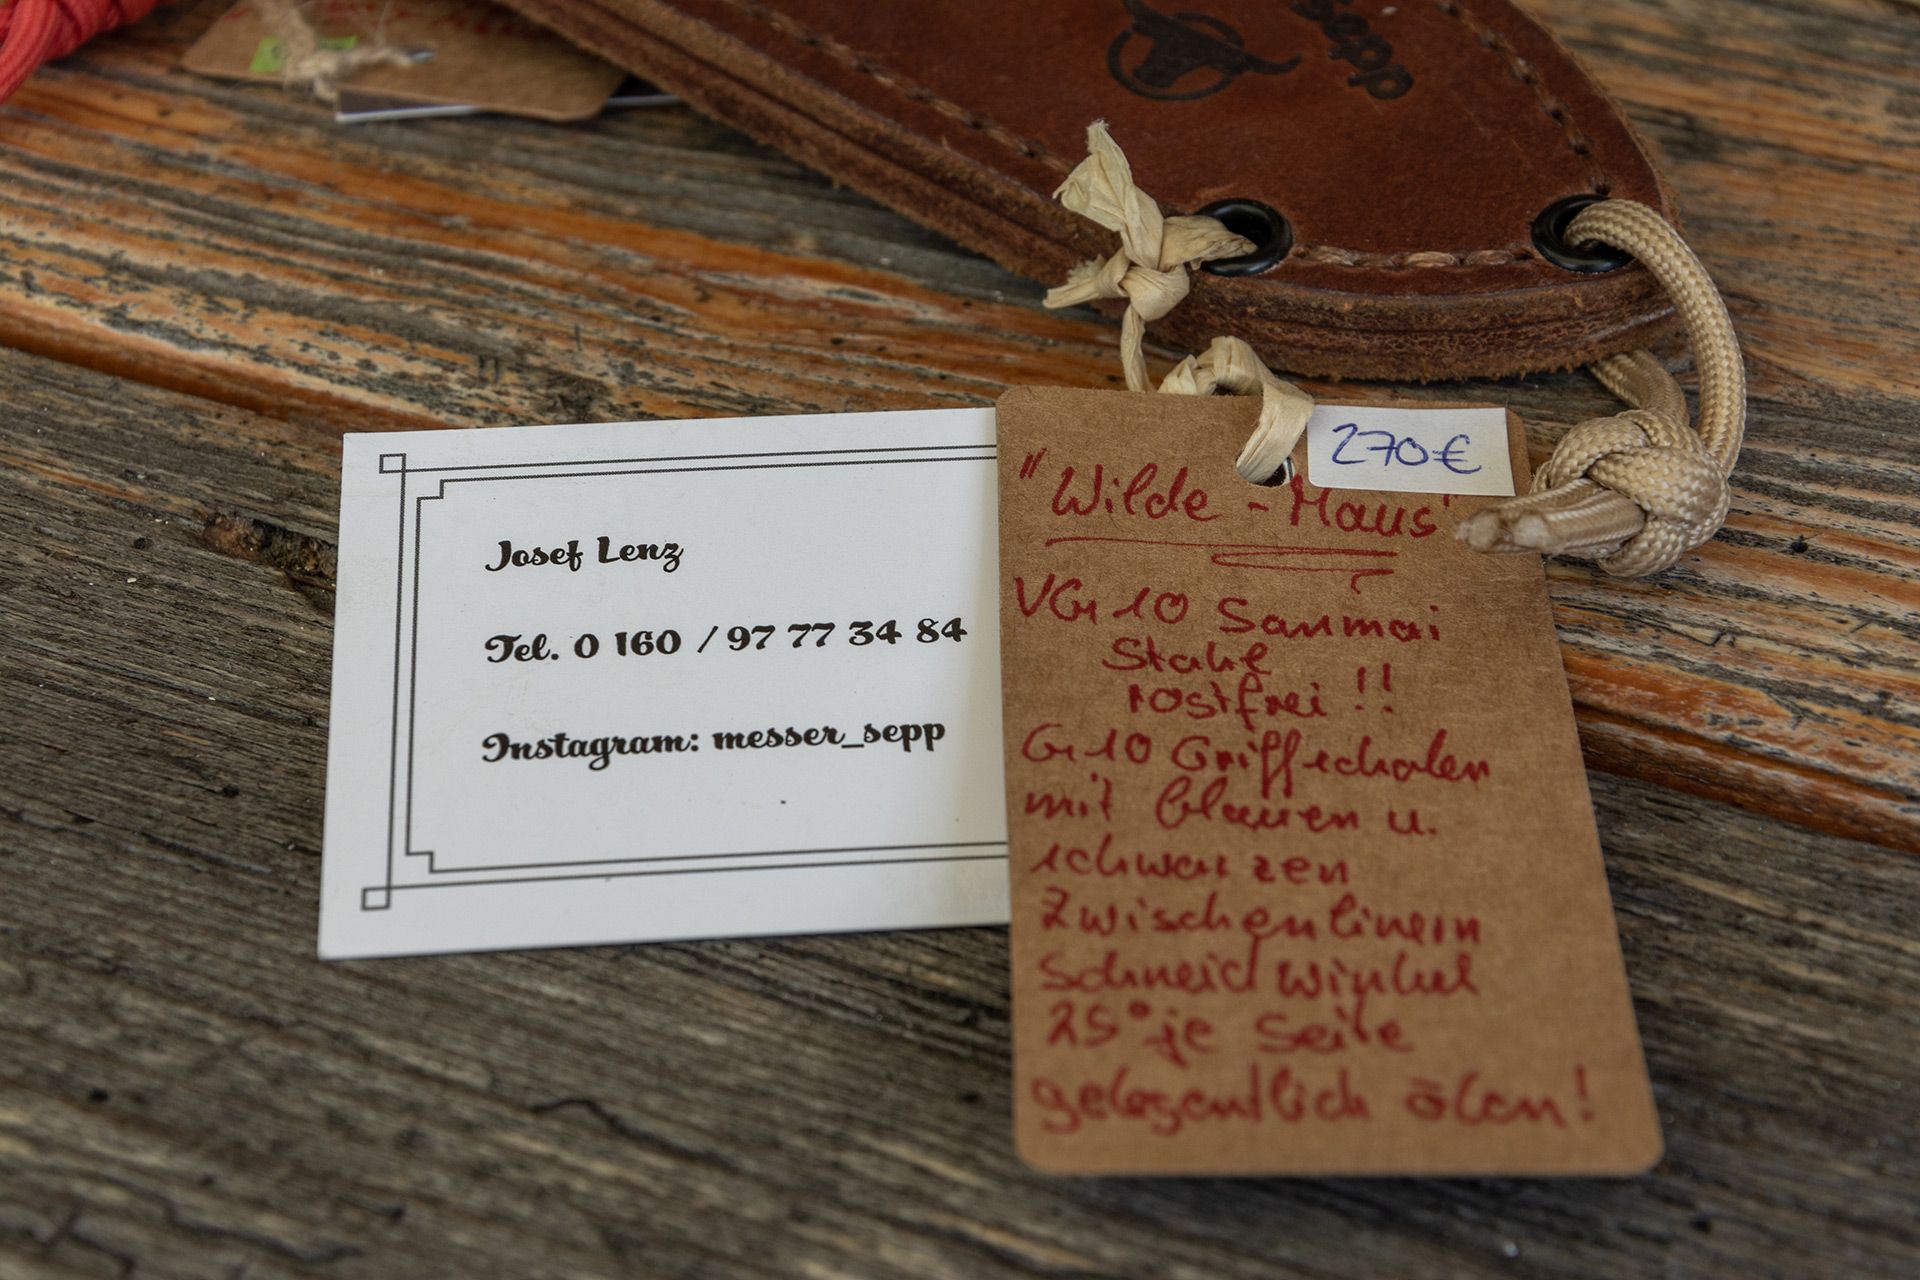 sepp
Josef Lenz
Tel. 0 160 / 97 77 34 84
Instagram: messer_sepp
270€
"Wilde-Maus"
VG 10 Sanmai
Stahl
rostfrei !!
G10 Griffschalen
mit blauen u.
schwarzen
Zwischenlinern
Schneidwinkel
25° je Seite
gelegentlich ölen!